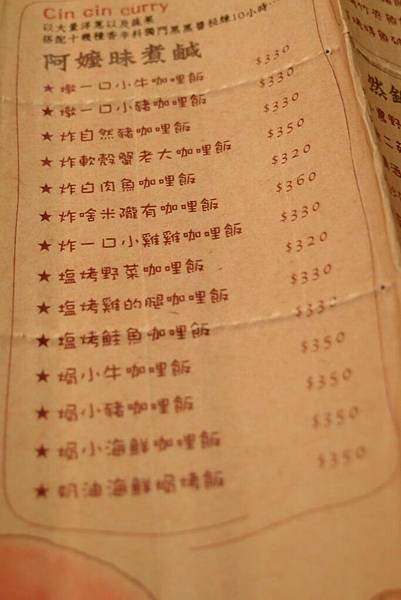 Cin cin curry
以大量洋蔥以及蔬果
搭配十幾種香辛料獨門黑黑醬秘煉10小時…
阿嬤昧煮鹹
★ 燉一口小牛咖哩飯 $330
★ 燉一口小豬咖哩飯 $330
★ 炸自然豬咖哩飯 $330
★ 炸軟殼蟹老大咖哩飯 $350
★ 炸白肉魚咖哩飯 $320
★ 炸啥米隴有咖哩飯 $360
★ 炸一口小雞雞咖哩飯 $330
★ 塩烤野菜咖哩飯 $320
★ 塩烤雞的腿咖哩飯 $330
★ 塩烤鮭魚咖哩飯 $330
★ 焗小牛咖哩飯 $350
★ 焗小豬咖哩飯 $350
★ 焗小海鮮咖哩飯 $350
★ 奶油海鮮焗烤飯 $350